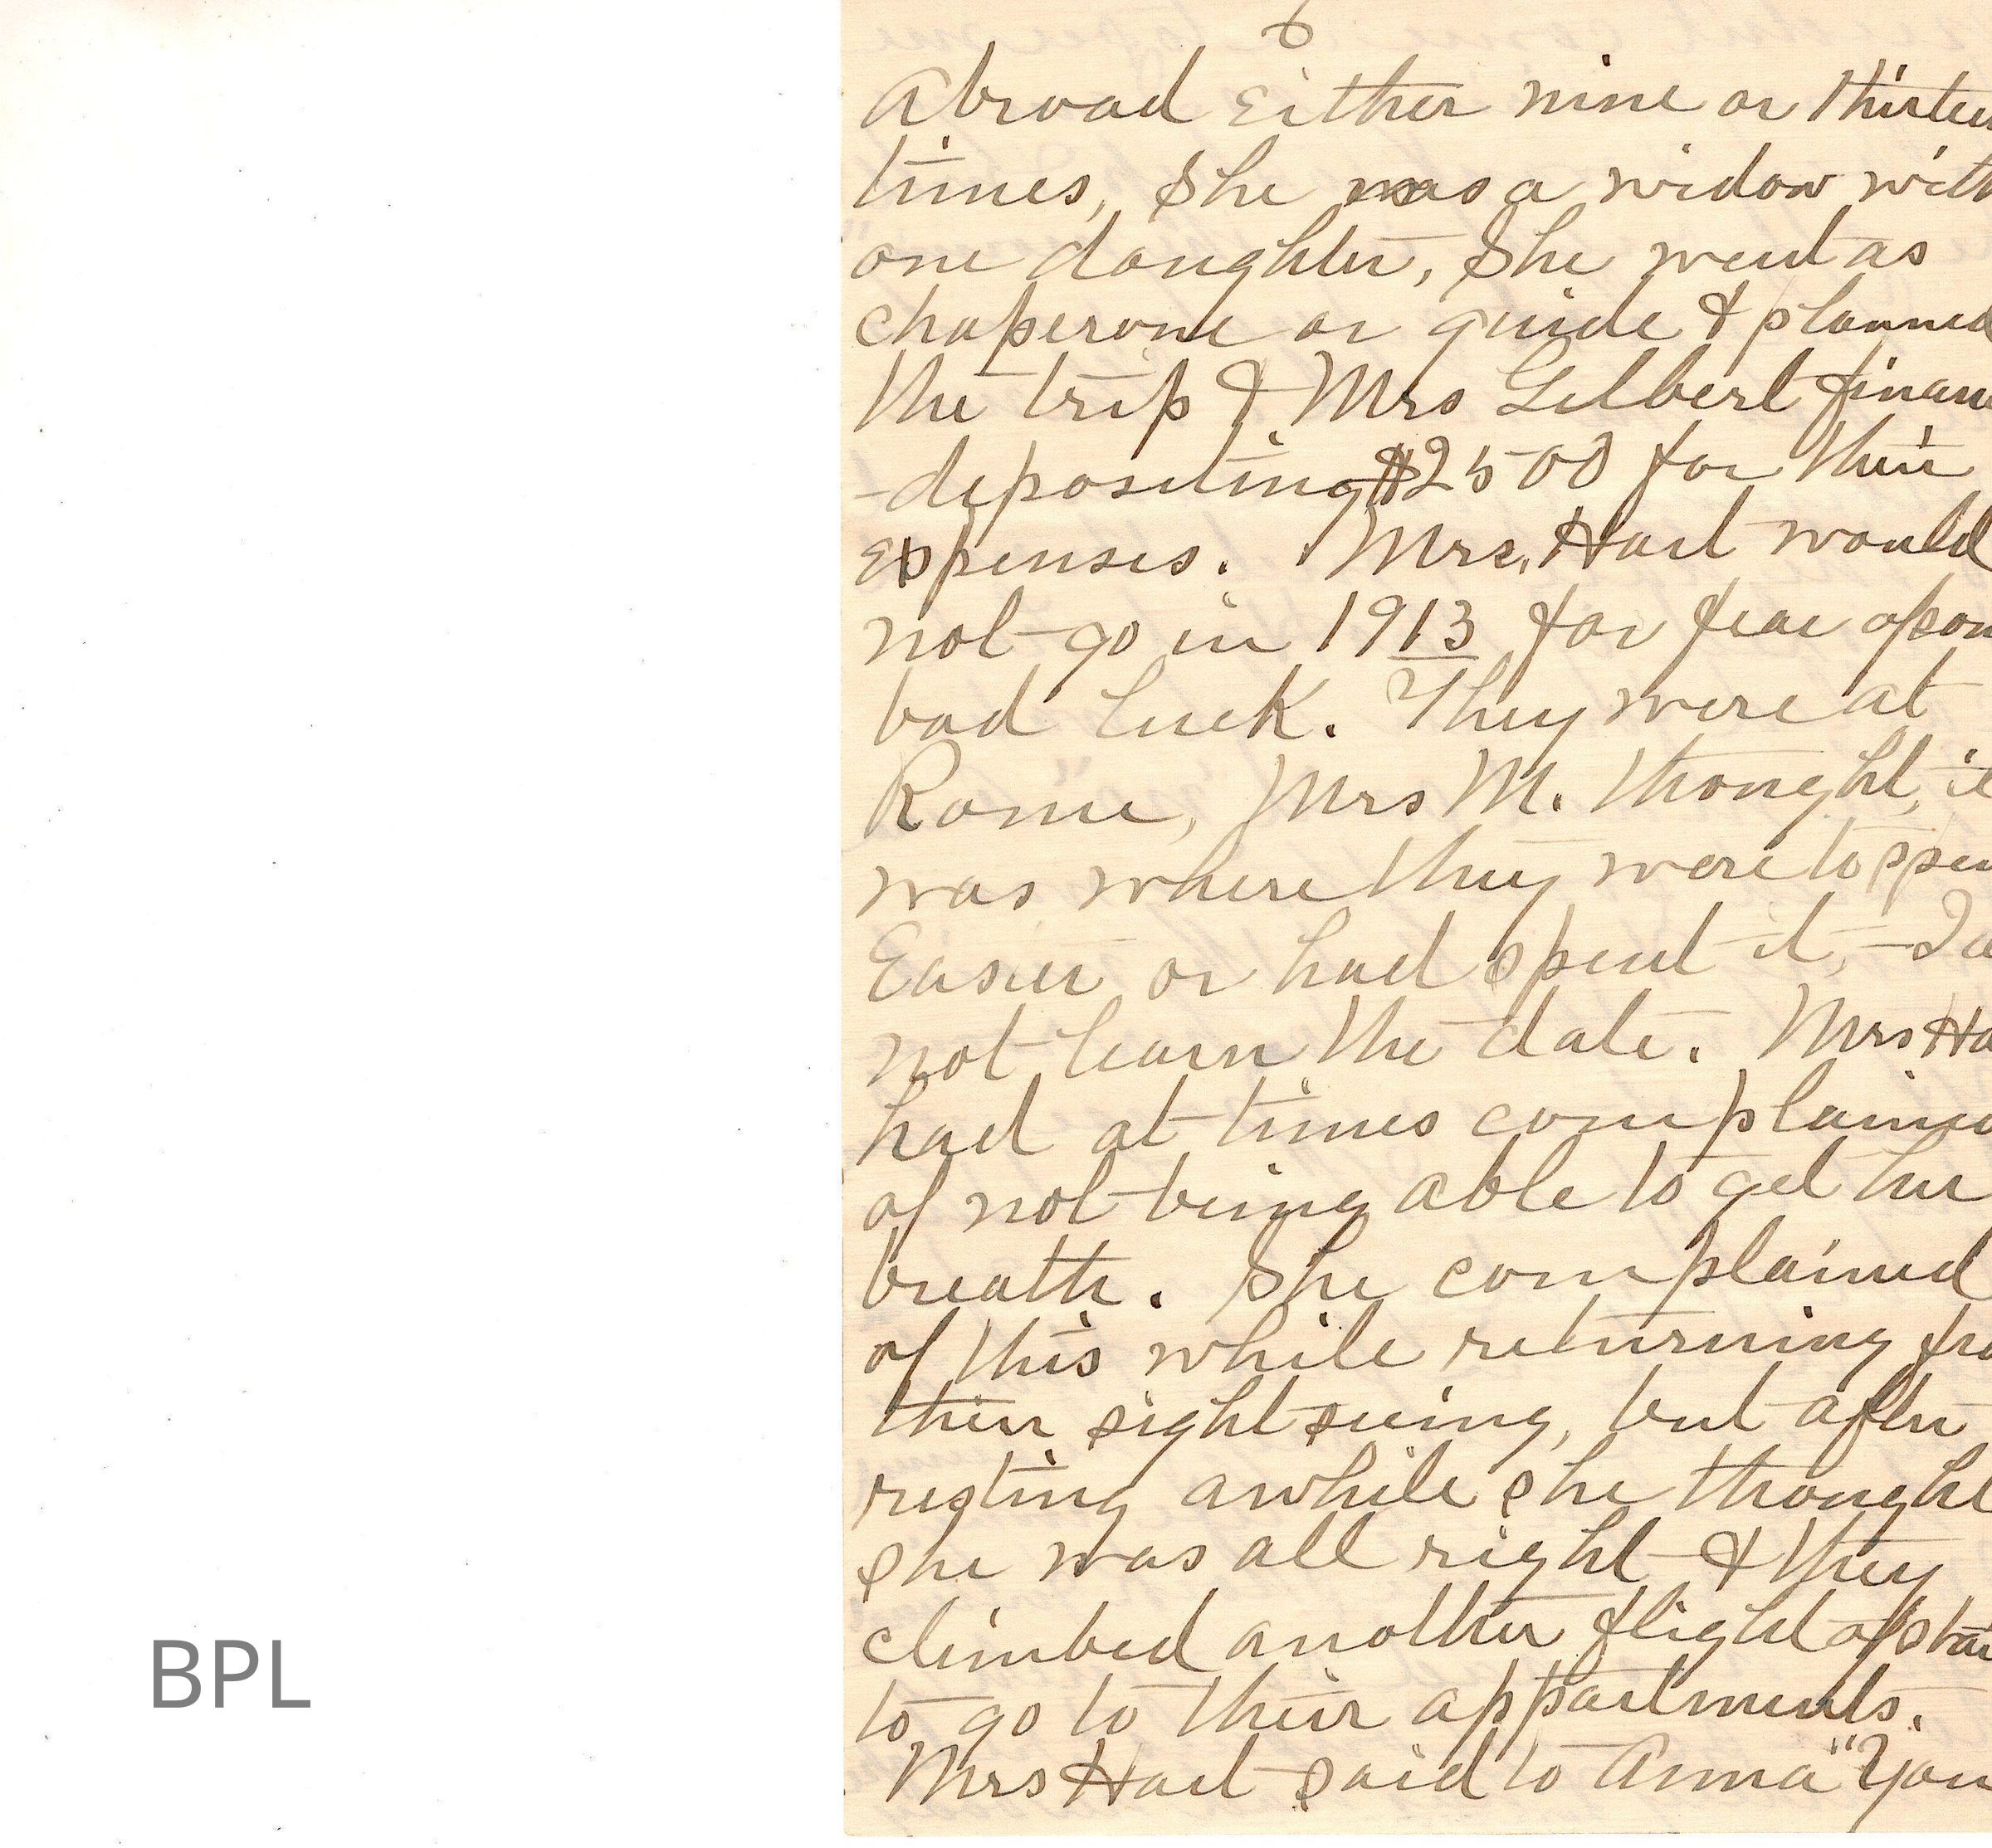 6
Abroad either nine or thirteen
times, She was a widow with
one daughter, She went as
chaperone or guide & planned
the trip & Mrs Gilbert financ
-depositing $2500 for their
expenses. Mrs. Hart would
not go in 1913 for fear of som
bad luck. They were at
Rome, Mrs M. thought it
was where they were to spen
Easter or had spent it, - I
not learn the date. Mrs Ha
had at times complained
of not being able to get her
breath. She complained
of this while returning fro
their sight seeing, but after
resting awhile she thought
she was all right & they
climbed another flight of stai
to go to their appartments.
Mrs Hart said to Anna "You
BPL